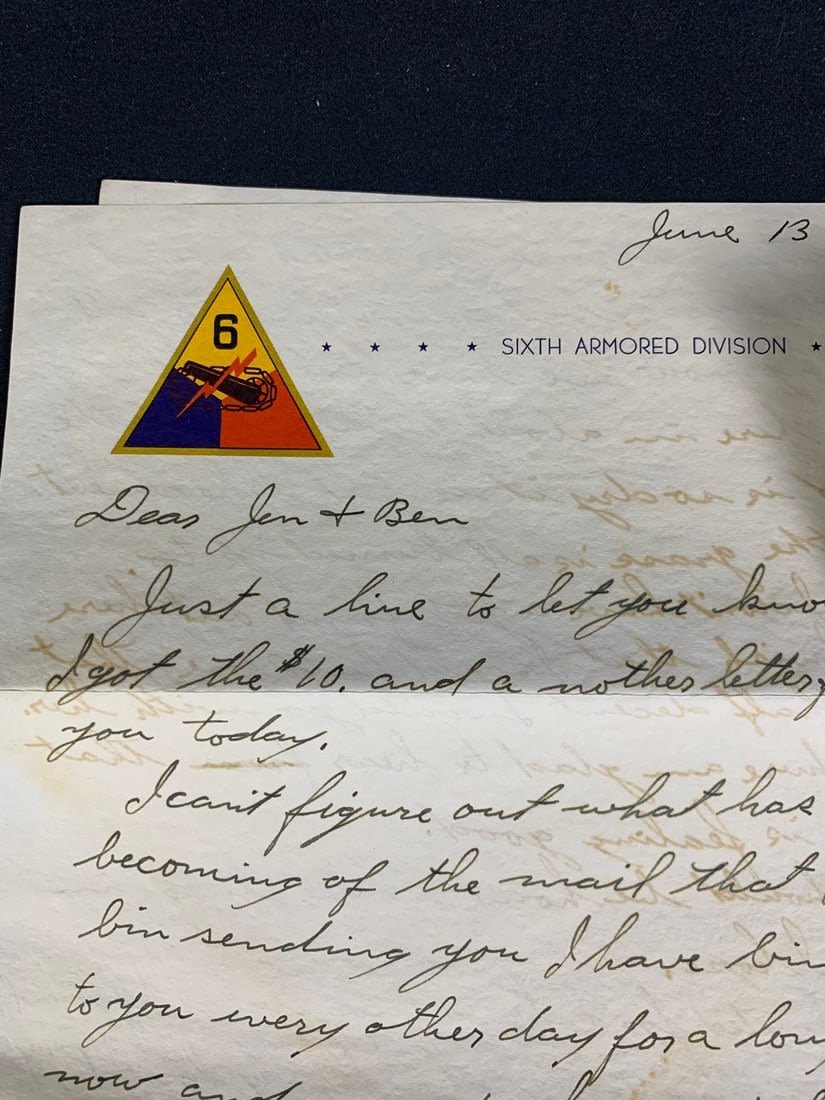 June 13
6
SIXTH ARMORED DIVISION
Dear Jen + Ben
Just a line to let you kno
I got the $10. and a nother letter
you today.
I can't figure out what has
becoming of the mail that
bin sending you I have bin
to you every other day for a lon
now and